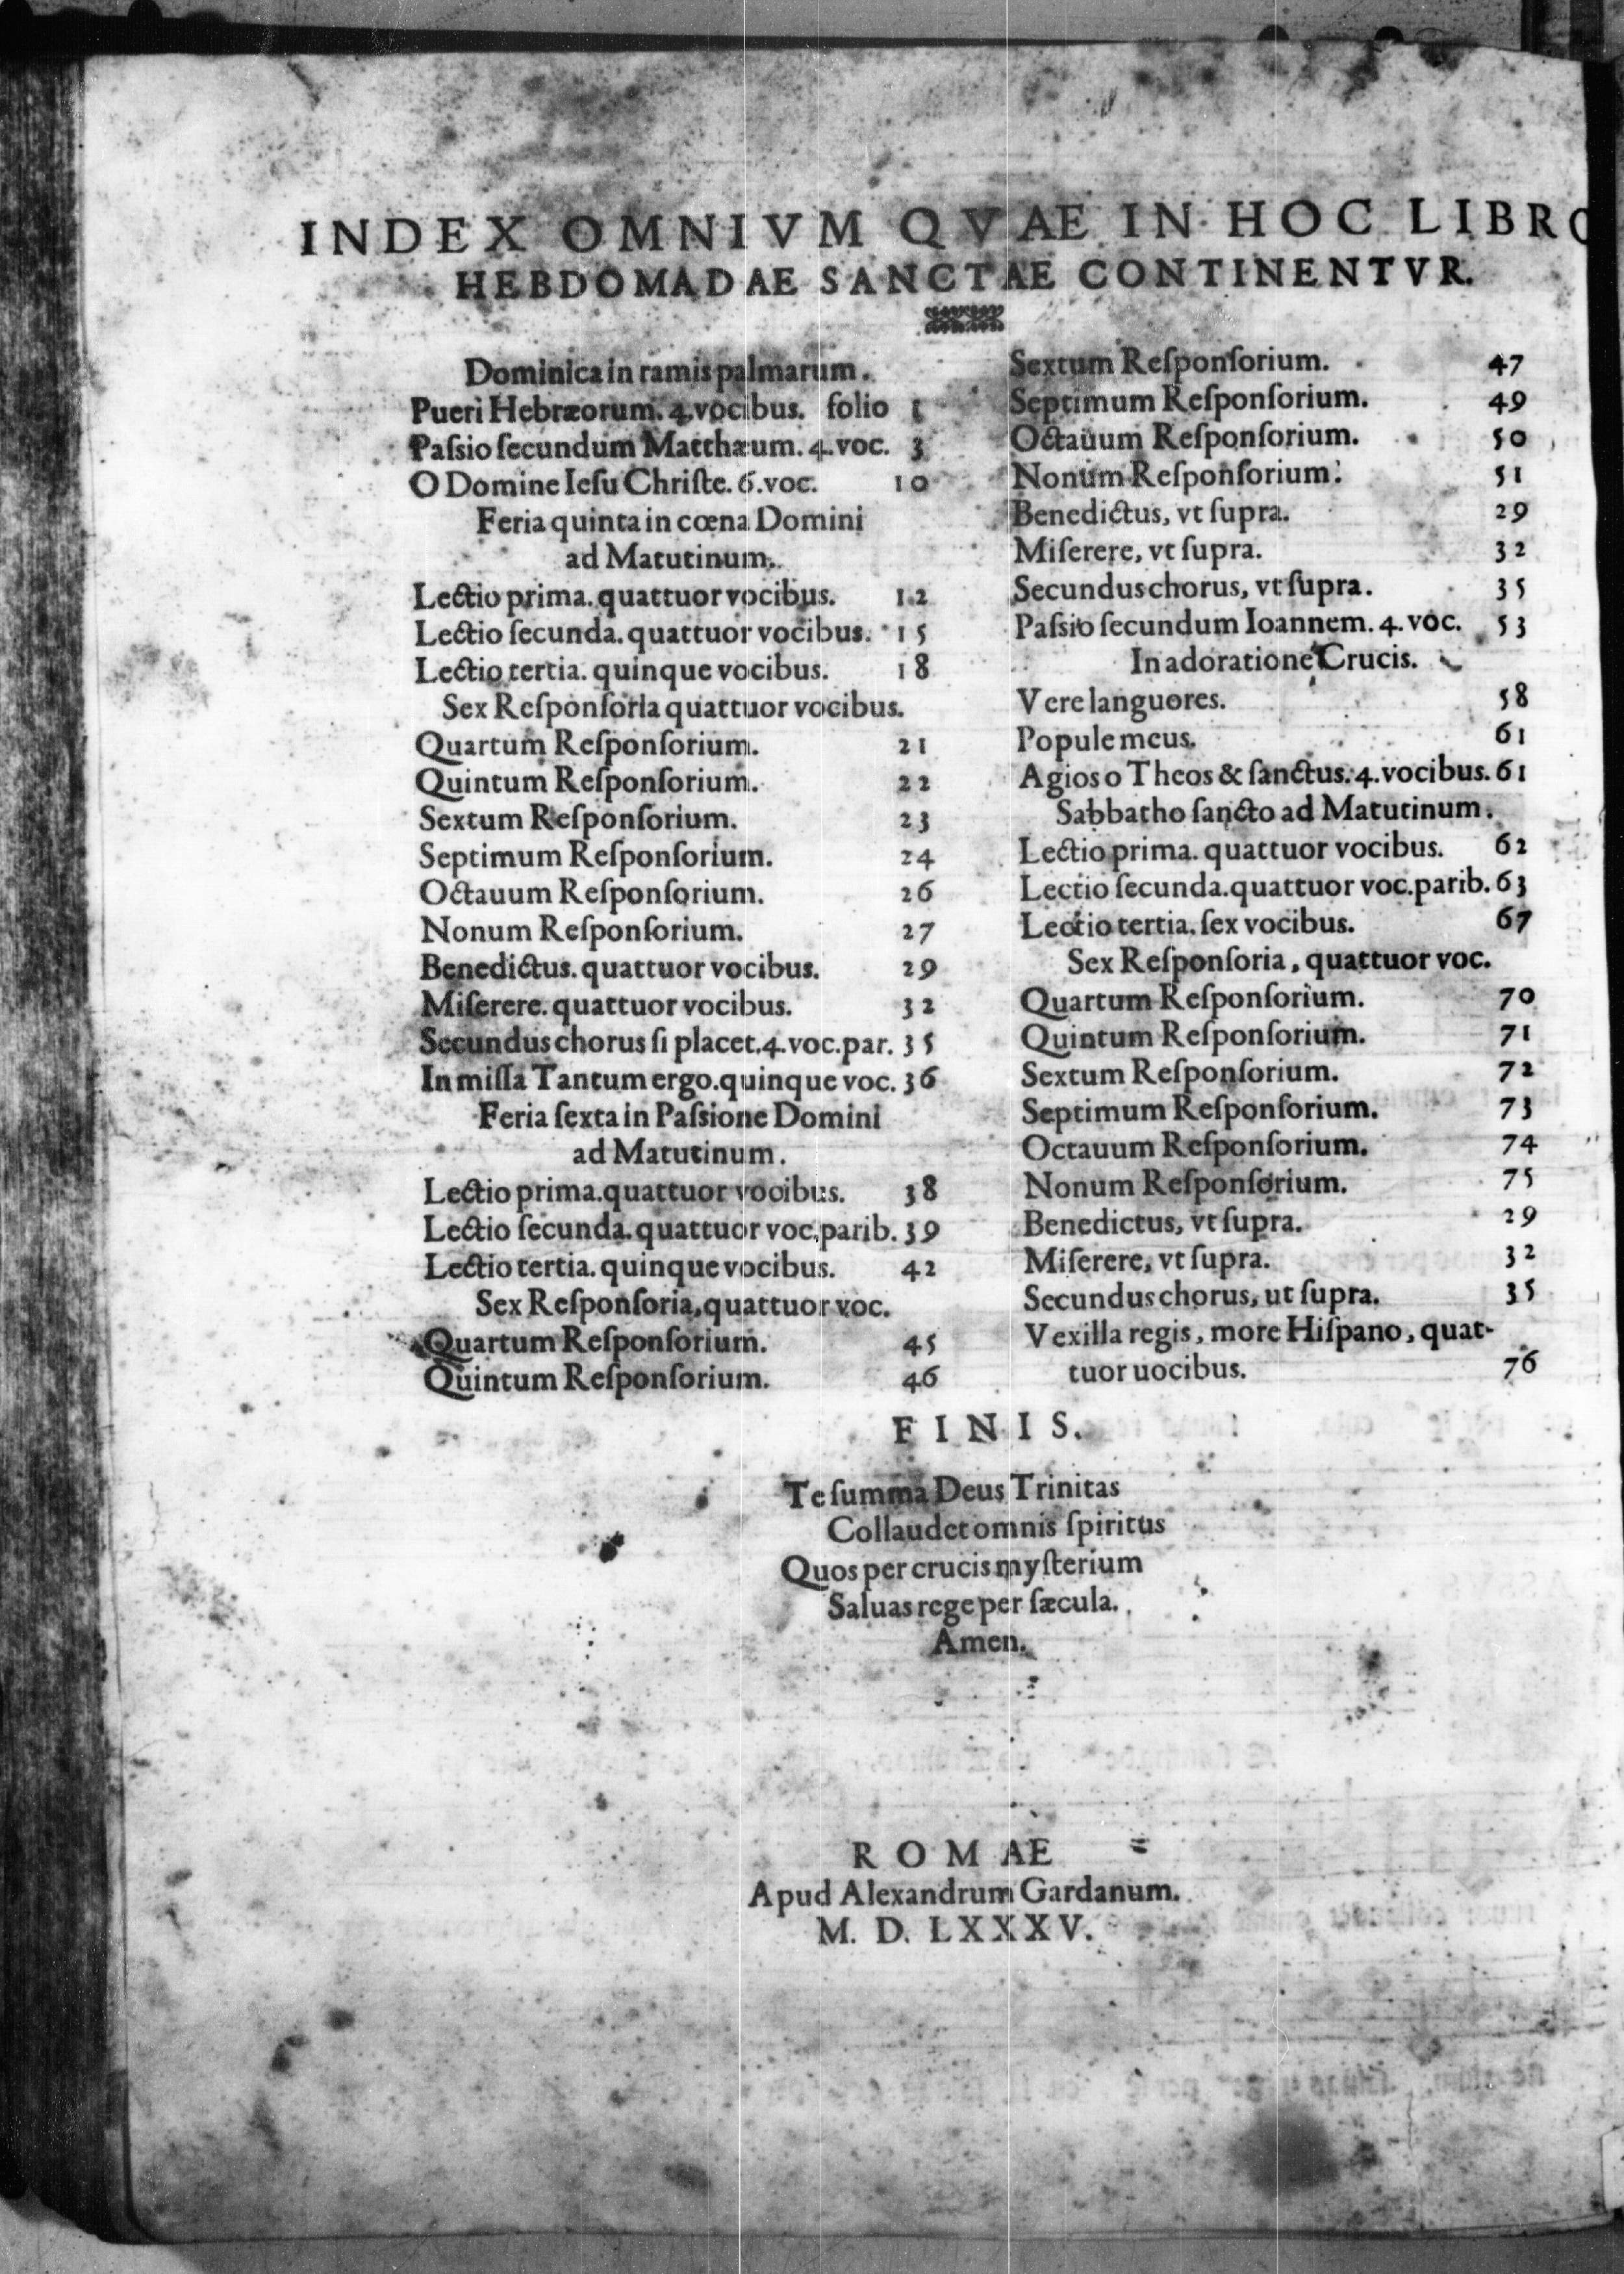 INDEX OMNIVM QVAE IN HOC LIBRO
HEBDOMADAE SANCTAE CONTINENTVR.
Dominica in ramis palmarum.
Pueri Hebræorum. 4. vocibus. folio 1
Paſsio ſecundum Matthæum. 4. voc. 3
O Domine Ieſu Chriſte. 6. voc. 10
Feria quinta in cœna Domini
ad Matutinum.
Lectio prima. quattuor vocibus. 12
Lectio ſecunda. quattuor vocibus. 15
Lectio tertia. quinque vocibus. 18
Sex Reſponſoria quattuor vocibus.
Quartum Reſponſorium. 21
Quintum Reſponſorium. 22
Sextum Reſponſorium. 23
Septimum Reſponſorium. 24
Octauum Reſponſorium. 26
Nonum Reſponſorium. 27
Benedictus. quattuor vocibus. 29
Miſerere. quattuor vocibus. 32
Secundus chorus ſi placet. 4. voc. par. 35
In miſſa Tantum ergo. quinque voc. 36
Feria ſexta in Paſsione Domini
ad Matutinum.
Lectio prima. quattuor vocibus. 38
Lectio ſecunda. quattuor voc. parib. 39
Lectio tertia. quinque vocibus. 42
Sex Reſponſoria, quattuor voc.
Quartum Reſponſorium. 45
Quintum Reſponſorium. 46
Sextum Reſponſorium. 47
Septimum Reſponſorium. 49
Octauum Reſponſorium. 50
Nonum Reſponſorium. 51
Benedictus, vt ſupra. 29
Miſerere, vt ſupra. 32
Secundus chorus, vt ſupra. 35
Paſsio ſecundum Ioannem. 4. voc. 53
In adoratione Crucis.
Vere languores. 58
Popule meus. 61
Agios o Theos & ſanctus. 4. vocibus. 61
Sabbatho ſancto ad Matutinum.
Lectio prima. quattuor vocibus. 62
Lectio ſecunda. quattuor voc. parib. 63
Lectio tertia. ſex vocibus. 67
Sex Reſponſoria, quattuor voc.
Quartum Reſponſorium. 70
Quintum Reſponſorium. 71
Sextum Reſponſorium. 72
Septimum Reſponſorium. 73
Octauum Reſponſorium. 74
Nonum Reſponſorium. 75
Benedictus, vt ſupra. 29
Miſerere, vt ſupra. 32
Secundus chorus, ut ſupra. 35
Vexilla regis, more Hiſpano, quat-
tuor uocibus. 76
FINIS.
Te ſumma Deus Trinitas
Collaudet omnis ſpiritus
Quos per crucis myſterium
Saluas rege per ſæcula.
Amen.
ROMAE
Apud Alexandrum Gardanum.
M. D. LXXXV.